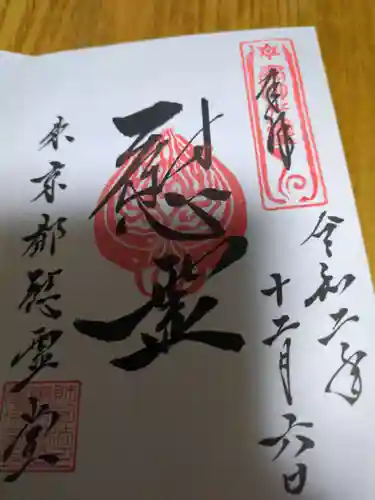 奉拝
令和二年
十二月六日
慰霊
東京都慰霊堂